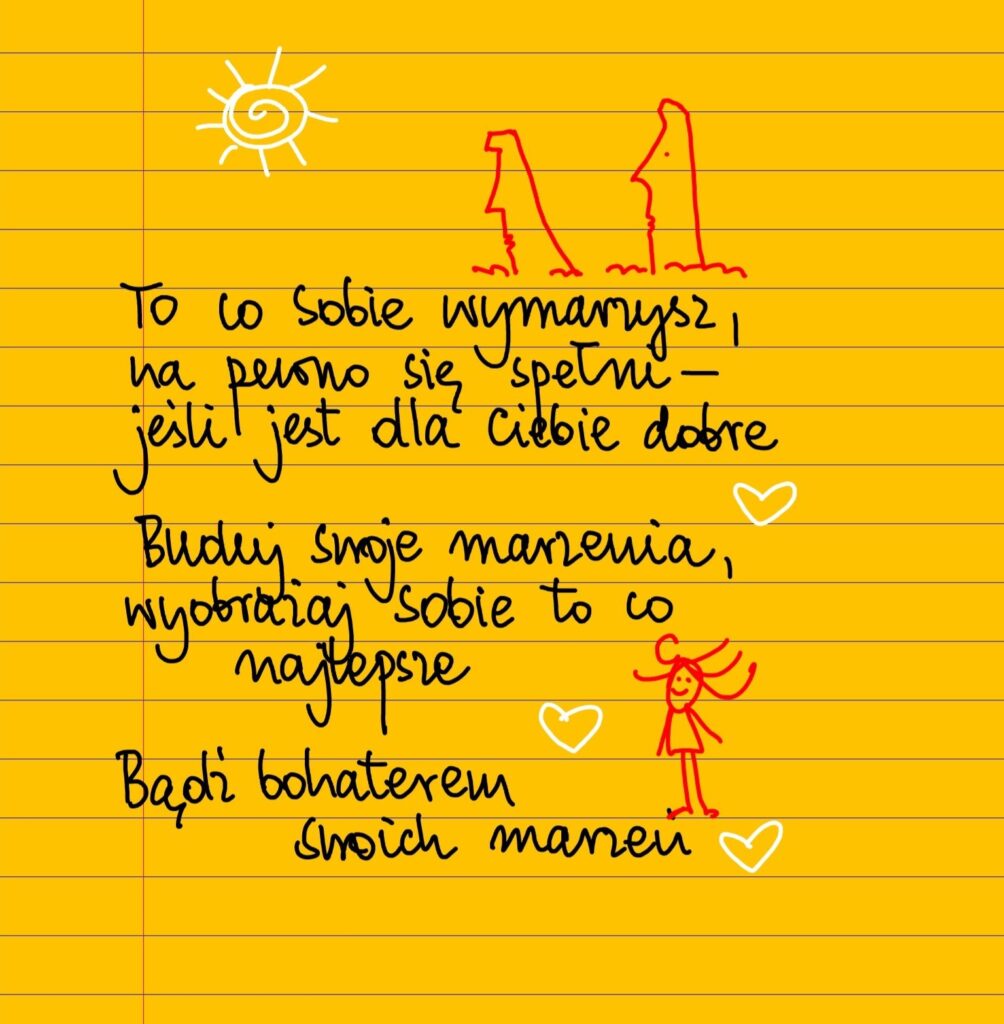 To co sobie wymarzysz,
na pewno się spełni –
jeśli jest dla Ciebie dobre
Buduj swoje marzenia,
wyobrażaj sobie to co
najlepsze
Bądź bohaterem
swoich marzeń